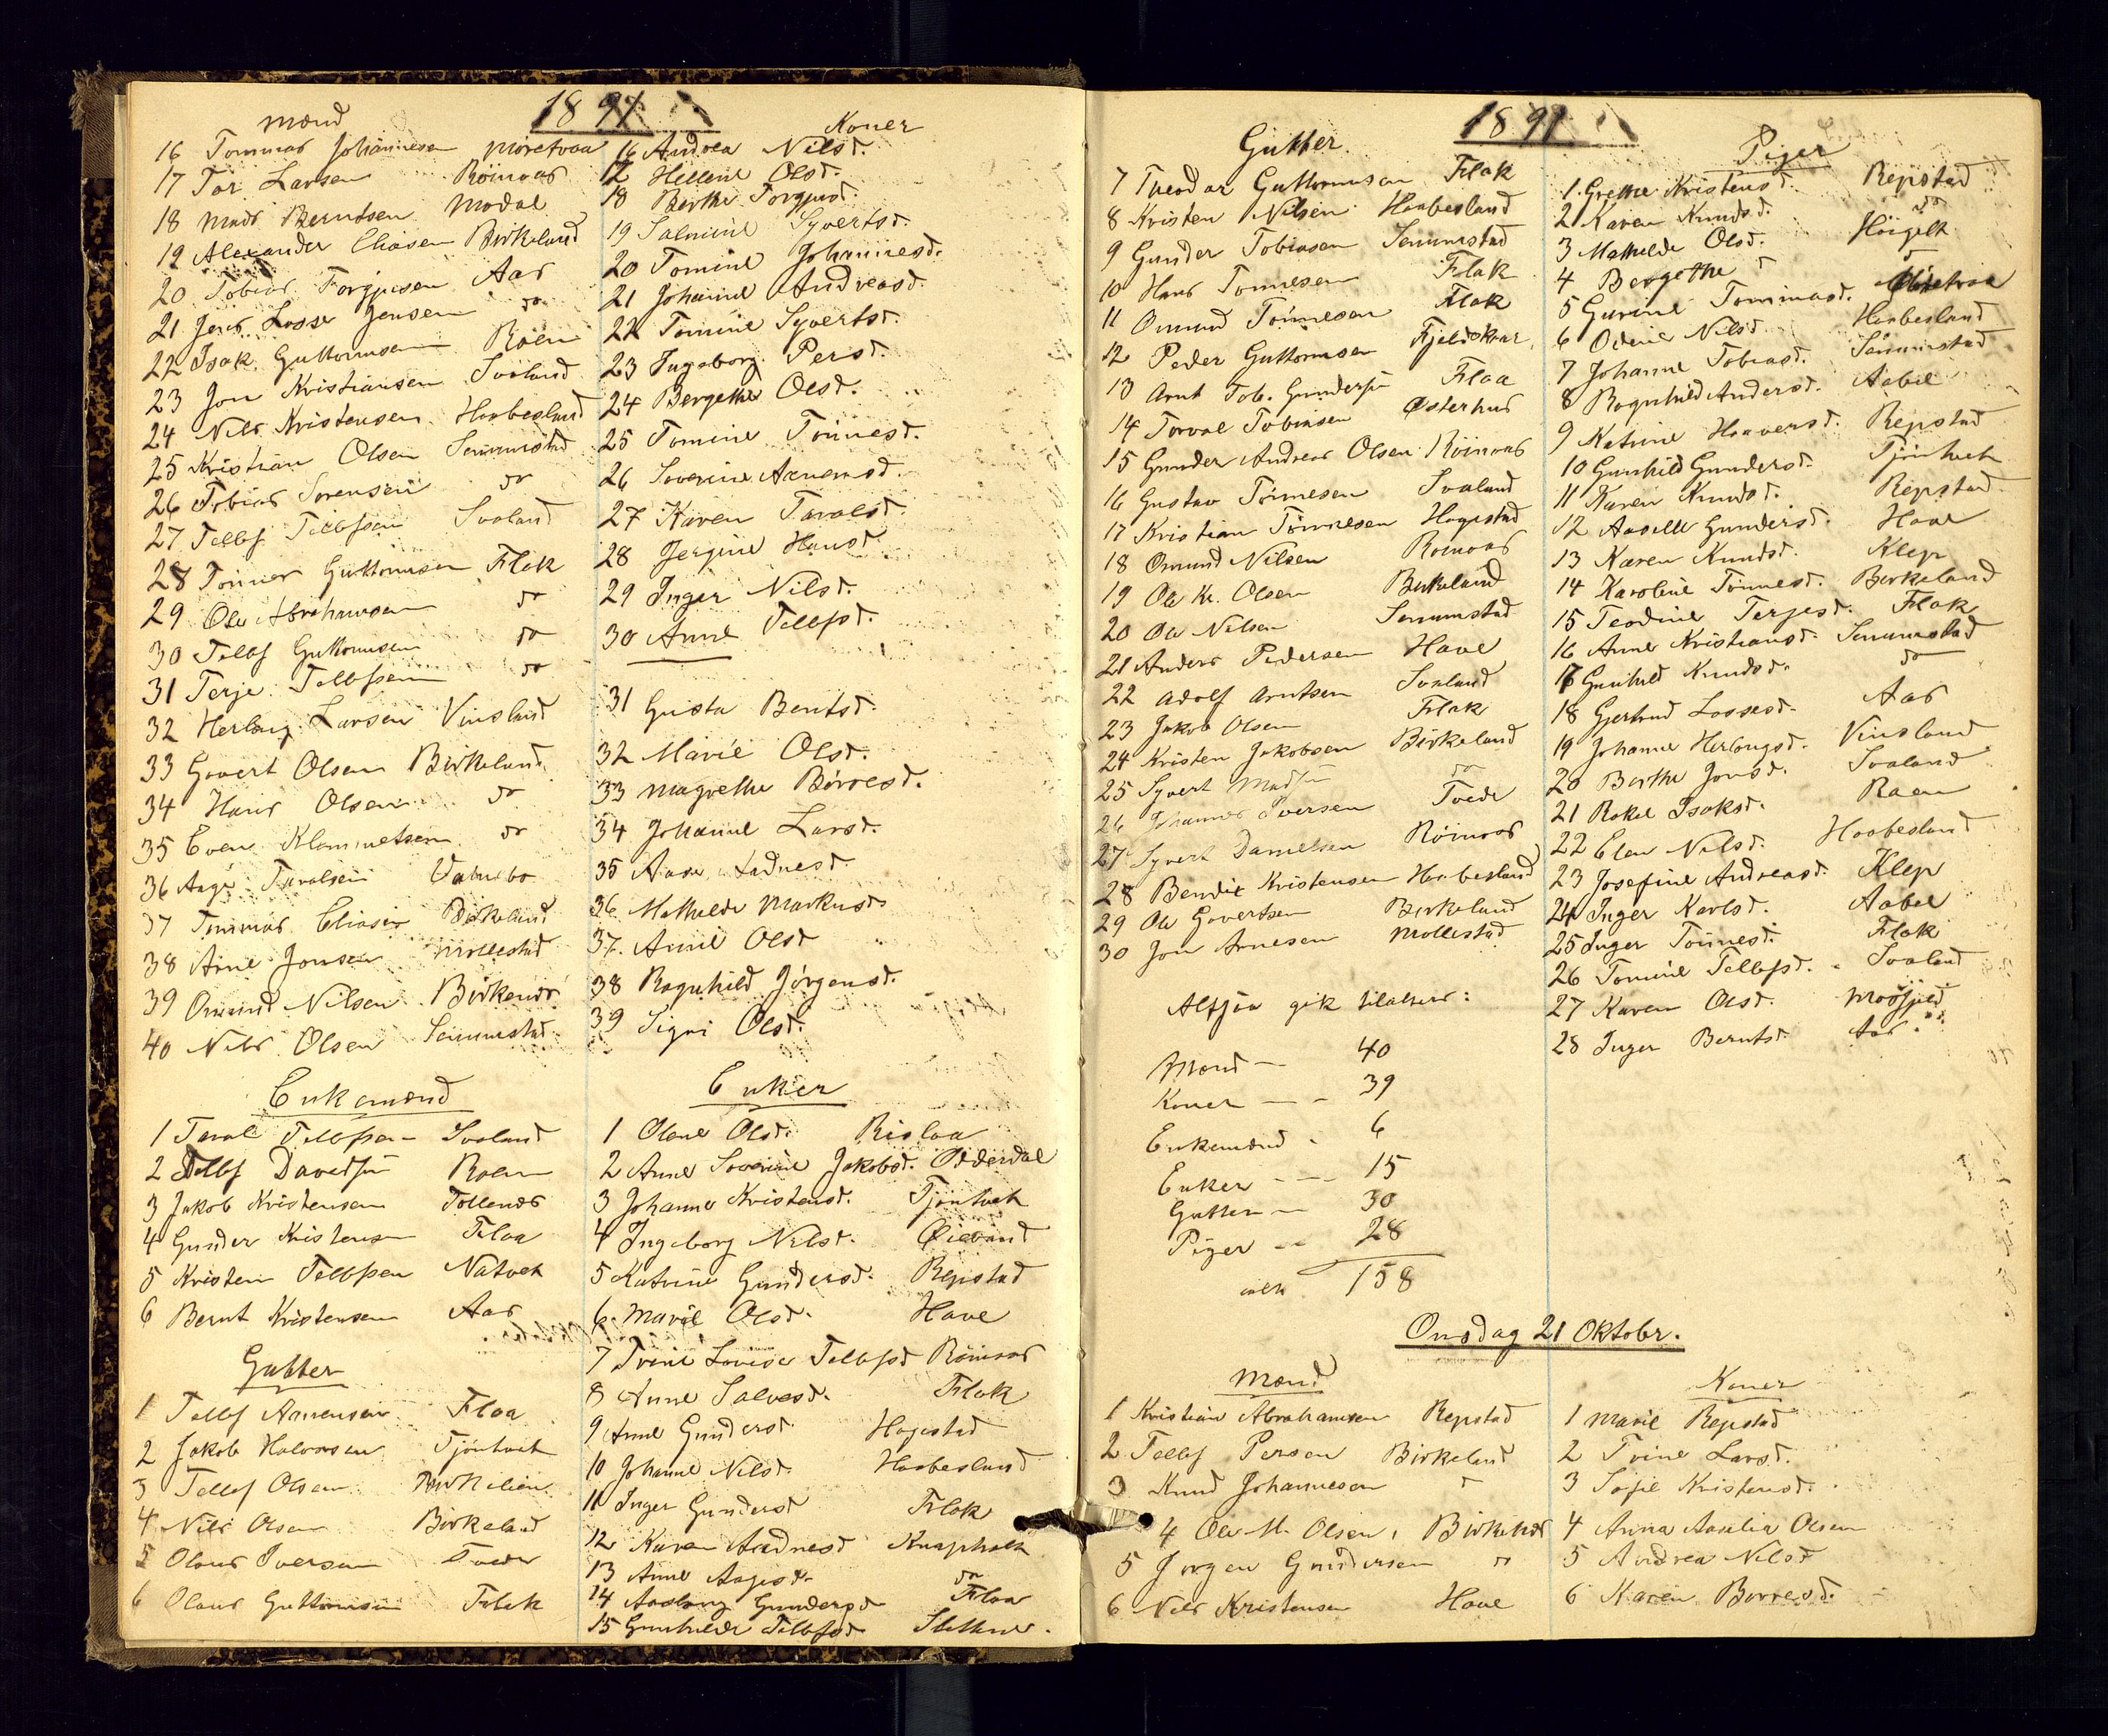 1891
Mænd
16 Tommas Johannesen Moretraa
17 Tor Larsen Röinaas
18 Mads Berntsen Modal
19 Alexander Eliasen Birkeland
20 Tobias Torgjusen Aas
21 Jens Losse Jensen do
22 Isak Guttormsen Roen
23 Jon Kristiansen Svaland
24 Nils Kristensen Haabesland
25 Kristian Olsen Senumstad
26 Tobias Sorensen do
27 Tellef Tellefsen Svaland
28 Tönnes Guttormsen Flak
29 Ole Abrahamsen do
30 Tellef Guttormsen do
31 Terje Tellefsen do
32 Herlaug Larsen Vinsland
33 Govert Olsen Birkeland
34 Hans Olsen do
35 Even Klemmetsen do
36 Aage Taralsen Vatnebo
37 Tommas Eliasen Birkeland
38 Arne Jonsen Mollestad
39 Omund Nilsen Birkenes
40 Nils Olsen Senumstad
Koner
16 Andrea Nilsd.
17 Hellene Olsd.
18 Berthe Torgjusd.
19 Salmine Syvertsd.
20 Tomine Johannesd.
21 Johanne Andreasd.
22 Tomine Syvertsd.
23 Ingeborg Persd.
24 Bergethe Olsd.
25 Tomine Tönnesd.
26 Soverine Aanensd.
27 Karen Taralsd.
28 Jergine Hansd.
29 Inger Nilsd.
30 Anne Tellefsd.
31 Gusta Bentsd.
32 Marie Olsd.
33 Magrethe Börresd.
34 Johanne Larsd.
35 Aase Aadnesd.
36 Mathilde Markusd.
37. Anne Olsd
38 Ragnhild Jörgensd.
39 Signi Olsd.
Enkemænd
1 Taral Tellefsen Svaland
2 Tellef Davidsen Roen
3 Jakob Kristensen Tollenes
4 Gunder Kristensen Flaa
5 Kristen Tellefsen Natvet
6 Bernt Kristensen Aas
Gutter
1 Tellef Aanensen Flaa
2 Jakob Halvorsen Tjöntveit
3 Tellef Olsen Birkelien
4 Nils Olsen Birkeland
5 Olaus Iversen Tveder
6 Olaus Guttormsen Flak
Enker
1 Olene Olsd. Rislaa
2 Anne Soverine Jakobsd. Oddersdal
3 Johanne Kristensd. Tjöntvet
4 Ingeborg Nilsd. Øieland
5 Katrine Gundersd. Repstad
6. Marie Olsd. Have
7 Trine Lovise Tellefsd Röinaas
8 Anne Salvesd. Flak
9 Anne Gundersd Hagestad
10 Johanne Nilsd. Haabesland
11 Inger Gundersd Flak
12 Karen Aadnesd Knapholt
13 Anne Aagesd. do
14 Aaslaug Gundersd Flaa
15 Gunhilde Tellefsd
1891
Gutter.
7 Theodor Guttormsen Flak
8 Kristen Nilsen Haabesland
9 Gunder Tobiasen Senumstad
10 Hans Tonnesen Flak
11 Omund Tönnesen Flak
12 Peder Guttormsen
13 Arnt Tob. Gundersen Flaa
14 Torval Tobiasen Østerhus
15 Gunder Andreas Olsen Röinaas
16 Gustav Tönnesen Svaland
17 Kristian Tönnesen Hagestad
18 Omund Nilsen Roinaas
19 Ole Kr. Olsen Birkeland
20 Ole Nilsen Senumstad
21 Anders Pedersen Have
22 Adolf Arntsen Svaland
23 Jakob Olsen Flak
24 Kristen Jakobsen Birkeland
25 Syvert Madsen do
26 Johannes Iversen Tveder
27 Syvert Danielsen Röinaas
28 Bendix Kristensen Haabesland
29 Ole Govertsen Birkeland
30 Jon Arnesen Mollestad
Piger
1. Grethe Kristensd. Repstad
2 Karen Knudsd. do
3 Mathilde Olsd. Höigilt
4 Bergethe d
5 Gurine Tommasd. Moretraa
6 Odine Nilsd Haabesland
7 Johanne Tobiasd. Senumstad
8 Ragnhild Andersd. Aabel
9 Katrine Haaversd. Repstad
10 Gunhild Gundersd. Tjöntveit
11 Karen Knudsd. Repstad
12 Aasille Gundersd. Have
13 Karen Knudsd. Klep
14 Karoline Tönnesd. Birkeland
15 Teodine Terjesd. Flak
16 Anne Kristiansd. Senumstad
17 Gunhild Knudsd. do
18 Gjertrud Lossesd. Aas
19 Johanne Herlaugsd. Vinsland
20 Berthe Jonsd. Svaland
21 Rakel Isaksd. Roen
22 Elen Nilsd. Haabesland
23 Josefine Andreasd. Klep
24 Inger Karlsd. Aabel
25 Inger Tönnesd. Flak
26 Tomine Tellefsd. Svaland
27 Karen Olsd. Mosfjeld
28 Inger Berntsd. Aas.
Altsaa gik tilalters:
Mænd — 40
Koner — - 39
Enkemænd - 6
Enker - - - 15
Gutter - - 30
Piger - - 28
ialt 158
Onsdag 21 Oktobr.
Mænd
1 Kristian Abrahamsen Repstad
2 Tellef Persen Birkeland
3 Knud Johannesen d
4 Ole M. Olsen, Birkenes
5 Jorgen Gundersen d
6 Nils Kristensen Have
Koner
1 Marie Repstad
2 Trine Larsd.
3 Sofie Kristensd.
4 Anna Amalia Olsen
5 Andrea Nilsd
6 Karen Borresd.